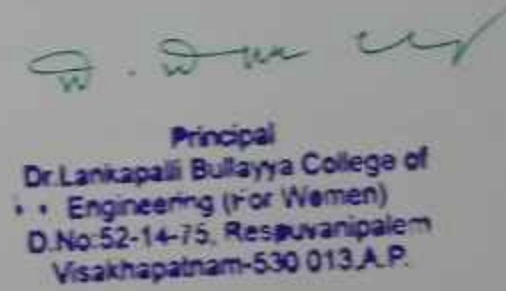 Principal
Dr.Lankapalli Bullayya College of
Engineering (For Women)
D.No:52-14-75, Resauvanipalem
Visakhapatnam-530 013,A.P.